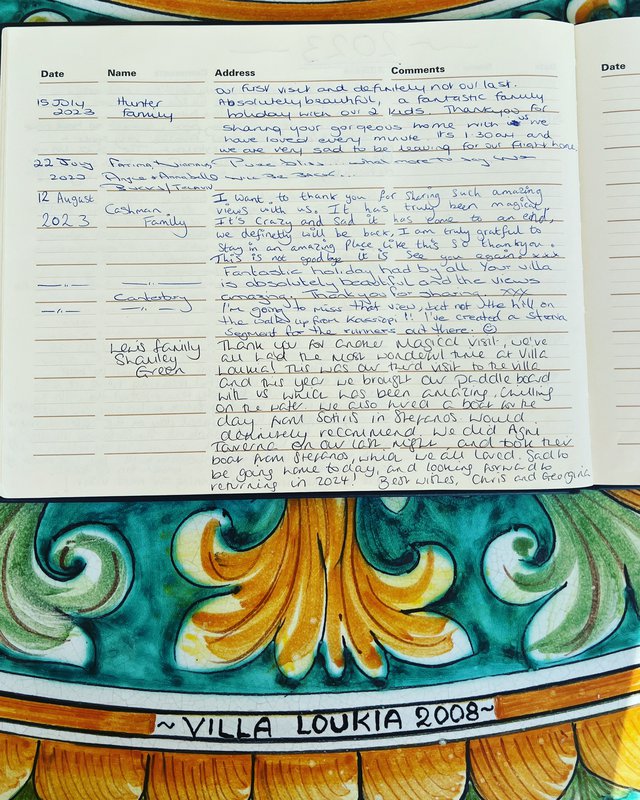 2023
Date Name Address Comments Date
Our first visit and definitely not our last.
15 July Hunter Absolutely beautiful, a fantastic family
2023 Family holiday with our 2 kids. Thankyou for
sharing your gorgeous home with us we
have loved every minute its 1:30am and
we are very sad to be leaving for our flight home
22 July Pure bliss - what more to say
2023 Angie + Annabelle will be Back...
12 August I want to thank you for sharing such amazing
2023 Cashman views with us. It has truly been magical.
Family It's crazy and sad it has come to an end,
we definetly will be back, I am truly gratful to
stay in an amazing place like this so thankyou.
This is not goodbye it is see you again xxx
Fantastic holiday had by all. Your villa
—"— —"— is absolutely beautiful and the views
Canterbury amazing. Thank you for sharing xxx
—"— —"— I'm going to miss that view, but not the hill on
the walk up from Kassiopi!! I've created a Strava
segment for the runners out there. ☺
Lewis family Thank you for another magical visit, we've
Shanley all had the most wonderful time at Villa
Green Loukia! This was our third visit to the villa
and this year we brought our paddle board
with us which has been amazing, chilling
on the water. We also hired a boat for the
day from Sotiris in Stefanos. Would
definitely recommend. We did Agni
Taverna on our last night and took their
boat from Stefanos, which we all loved. Sad to
be going home today, and looking forward to
returning in 2024! Best wishes, Chris and Georgina
~ VILLA LOUKIA 2008 ~